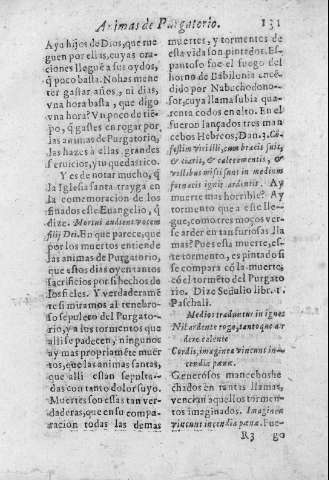 Animas de Purgatorio. 131
Ay a hijos de Dios, que me
guen por ellas, cuyas ora-
ciones lleguẽ a sus oydos,
q̃ poco basta. No has mene
ter gastar años, ni dias,
vna hora basta, que digo
vna hora? Vn poco de tie-
po, q̃ gastes en rogar por
las animas de Purgatorio,
les hazes à ellas grandes
seruicior, y tu quedas rico.
Y es de notar mucho, q̃
la Iglesia santa trayga en
la comemoracion de los
finados este Euangelio, q̃
dize. Mortui audient vocem
filij Dei. En que parece, que
por los muertos entiende
las animas de Purgatorio,
que estos dias oyen tantos
sacrificios por si hechos de
los fieles. Y verdaderamẽ
te si miramos al tenebro-
so sepulcro del Purgato-
rio, y a los tormentos que
alli se padecen, ningunos
ay mas propriamẽte muer
tos, que las animas santas,
que alli estan sepulta-
das con tanto dolor suyo.
Muertes son estas tan ver-
daderas, que en su compa-
racion todas las demas
muertes, y tormentos de
esta vida son pintados. Es-
pantoso fue el fuego del
horno de Babilonia encẽ-
dido por Nabuchodono-
sor, cuya llama subia qua-
renta codos en alto. En el
fueron lançados tres man-
cebos Hebreos, Dan. 3. Cõ-
festim viri illi, cum bracis suis,
& tiaris, & calceamentis, &
vestibus missi sunt in medium
fornacis ignis ardentis. Ay
muerte mas horrible? Ay
tormento que a este lle-
gue, como tres moços ver-
se arder en tan furiosas lla
mas? Pues esta muerte, es-
te tormento, es pintado si
se compara cõ la muerte,
cõ el tormẽto del Purgato
rio. Dize Sedulio libr. 1.
Paschali.
Medios traduntur in ignes
Nil ardente rogo, tanto que ar
dore calente
Cordis, imaginta vincunt in-
cendia pœnæ.
Generosos mancebos he
chados en tantas llamas,
vencian aquellos tormen-
tos imaginados. Imaginem
vincunt incendia pœnæ. Fue-
R3 go